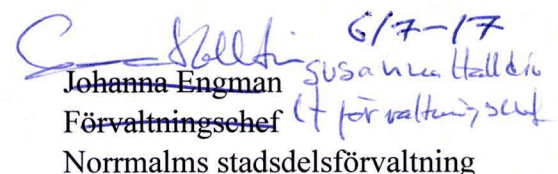 6/7-17
Johanna Engman Susanna Halldin
Förvaltningschef tf förvaltningschef
Norrmalms stadsdelsförvaltning